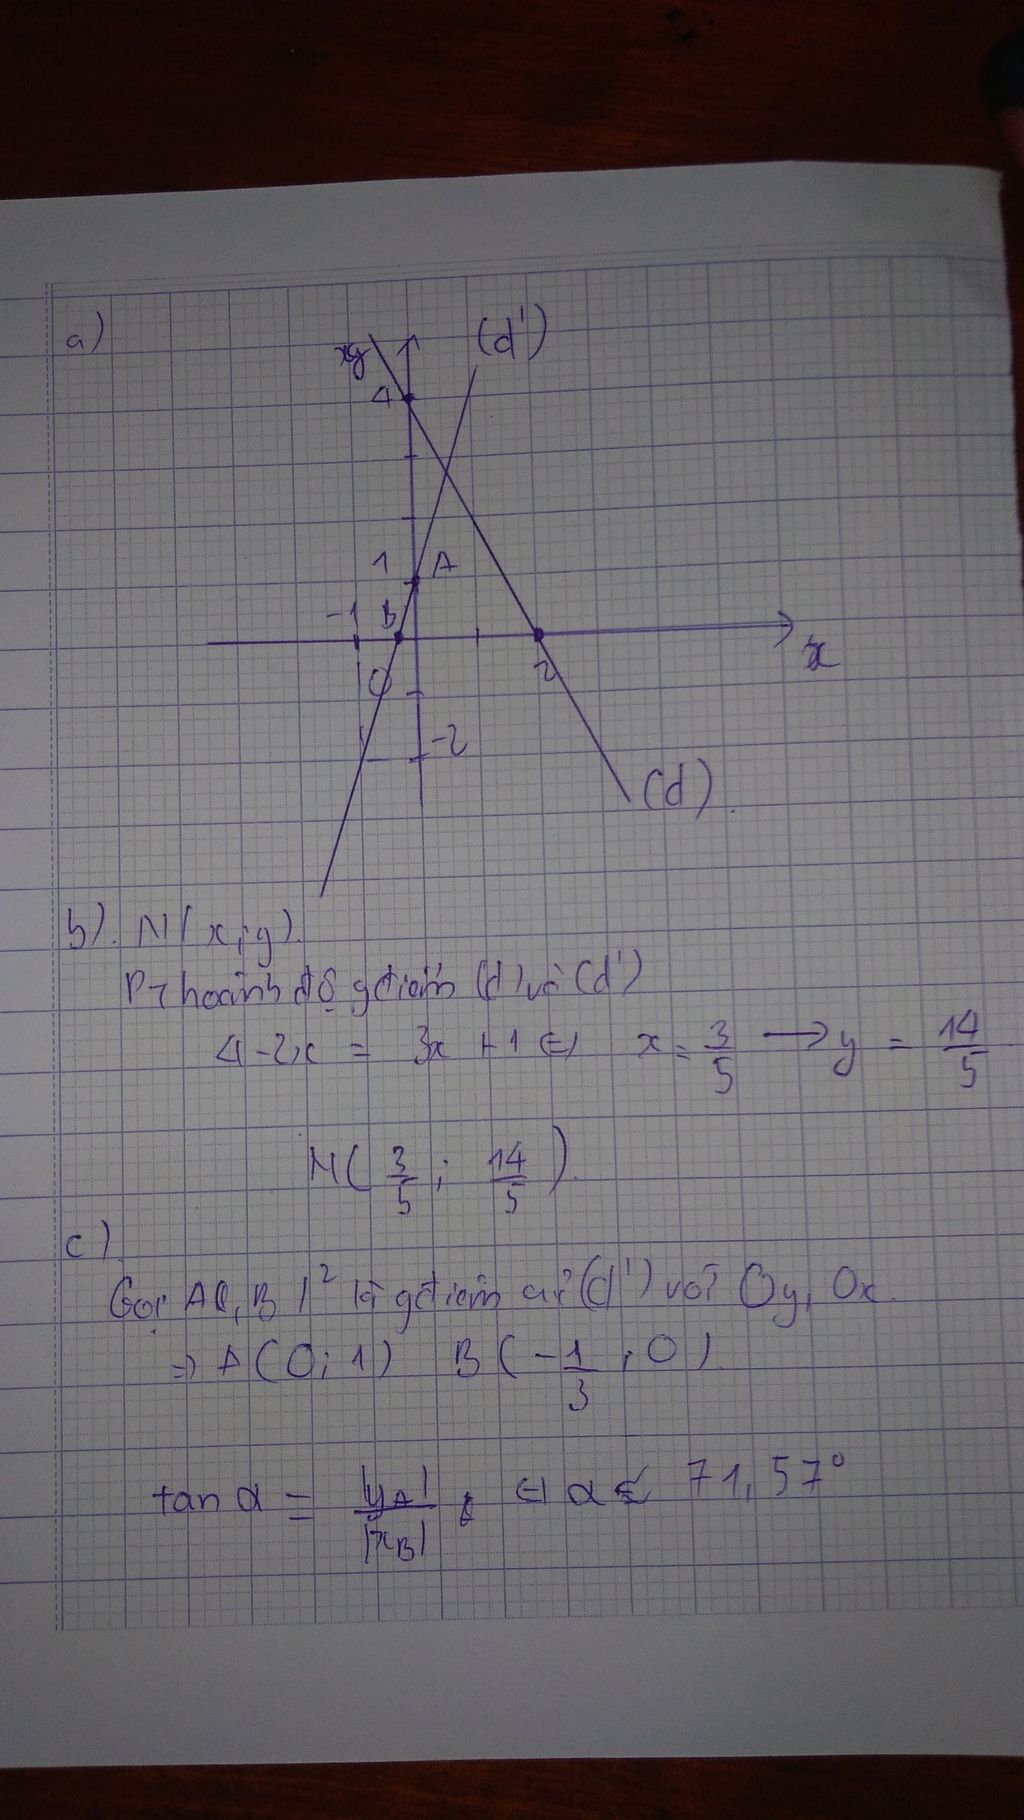 a)
y
(d')
4
1 A
-1 B
O 2 x
-2
(d)
b). N(x; y).
PT hoành độ gđiểm (d) và (d')
4 - 2x = 3x + 1 ⇔ x = 3/5 → y = 14/5
N( 3/5 ; 14/5 ).
c)
Gọi A, B l² là gđiểm củ (d') với Oy, Ox.
⇒ A(0; 1) B( -1/3 ; 0)
tan α = |yA|/|xB| ⇔ α 71,57°